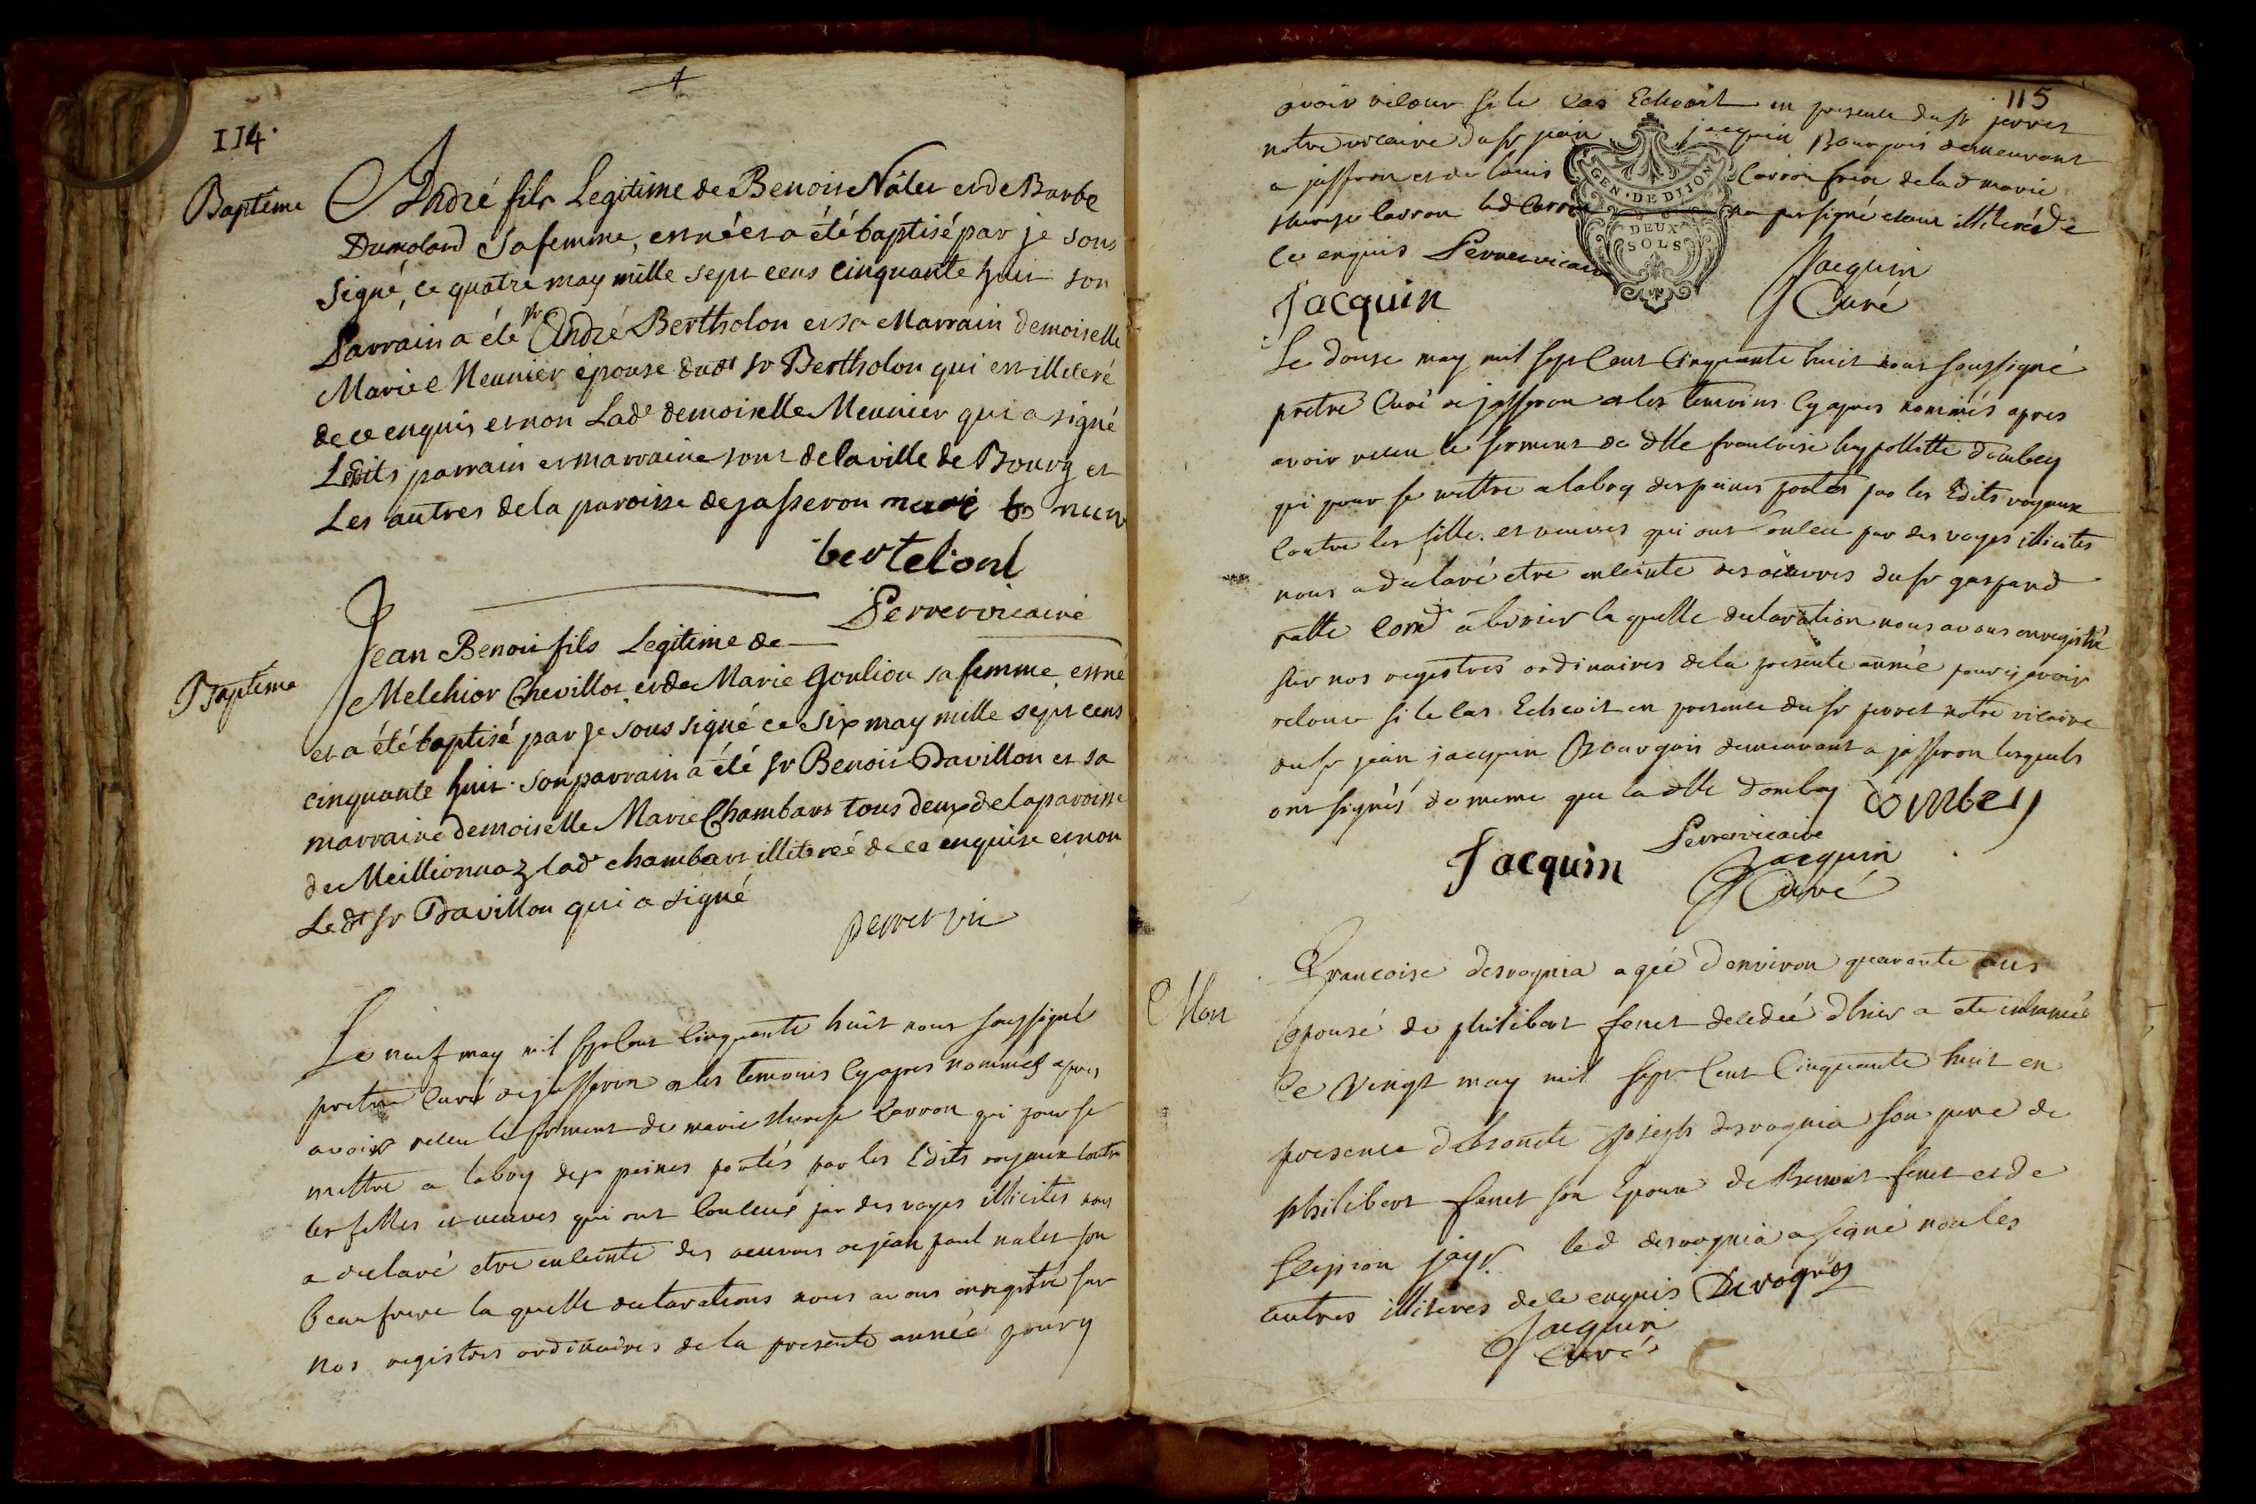 114.
Baptême
André fils Legitime de Benoist Nâlet et de Barbe
Dumolard sa femme, est né et a été baptisé par je sous
signé, ce quatre may mille sept cens cinquante huit son
Parrain a été sr André Bertholon et sa Marrain demoiselle
Marie Meunier épouse dudt sr Bertholon qui est illeteré
de ce enquis et non Lade demoiselle Meunier qui a signé
Ledits parrain et marraine sont de la ville de Bourg et
Les autres de la paroisse de jasseron
bertelond
Perret vicaire
Baptême
Jean Benoit fils Legitime de
Melchior Chevillot et de Marie Goulion sa femme, est né
et a été baptisé par je sous signé ce six may mille sept cens
cinquante huit. son parrain a été sr Benoit Davillon et sa
marraine demoiselle Marie Chambart tous deux de la paroisse
de Meillionnaz lade chambart illiterée de ce enquise et non
Le dt sr Davillon qui a signé
perret vic
Le neuf may mil sept cent cinquante huit nous soussigné
pretre curé de jasseron et les temoins cy apres nommés apres
avoir receu le serment de marie therese Carron qui pour se
mettre a labry des peines portés par les Edits royaux contre
les filles et veuves qui ont conceus par des voyes illicites nous
a declaré etre enceinte des oeuvres de jean paul nalet son
Beaufrere la quelle declarations nous avons enregistré sur
nos registres ordinaires de la presente année pour y
115
avoir recour si le cas Echeoit en presence du sr perret
notre vicaire du sr jean jacquin Bourgois demeurant
a jasseron et de louis Carron frere de la d marie
therese carron led Carron na pas signé etant illiteré de
ce enquis Perret vicaire
GEN. DE DIJON
DEUX
SOLS
Jacquin
Jacquin
Curé
Le douse may mil sept cent Cinquante huit nous soussigné
pretre Curé de jasseron et les temoins cy apres nommés apres
avoir receu le serment de dlle francoise hypollitte dombey
qui pour se mettre a labry des peines portés par les Edits royaux
contre les filles et veuves qui ont conceu par des voyes illicites
nous a declaré etre enceinte des oeuvres du sr gaspard
la quelle declaration nous avons enregistré
sur nos registres ordinaires de la presente année pour y avoir
recour si le cas Echeoit en presence du sr perret notre vicaire
du sr jean jacquin Bourgois demeurant a jasseron lesquels
ont signés de meme que la dlle dombey dombey
Perret vicaire
Jacquin
Jacquin
Curé
Mort
Francoise desvognia agée d'environ quarante ans
epouse de philibert feret decedée d'hier a eté inhumée
Ce vingt may mil sept cent Cinquante huit en
presence d'honete joseph desvognia son pere de
philibert feret son Epoux de Benoit feret et de
scipion jays led desvognia a signé non les
autres illiteres de ce enquis
Jacquin
Curé